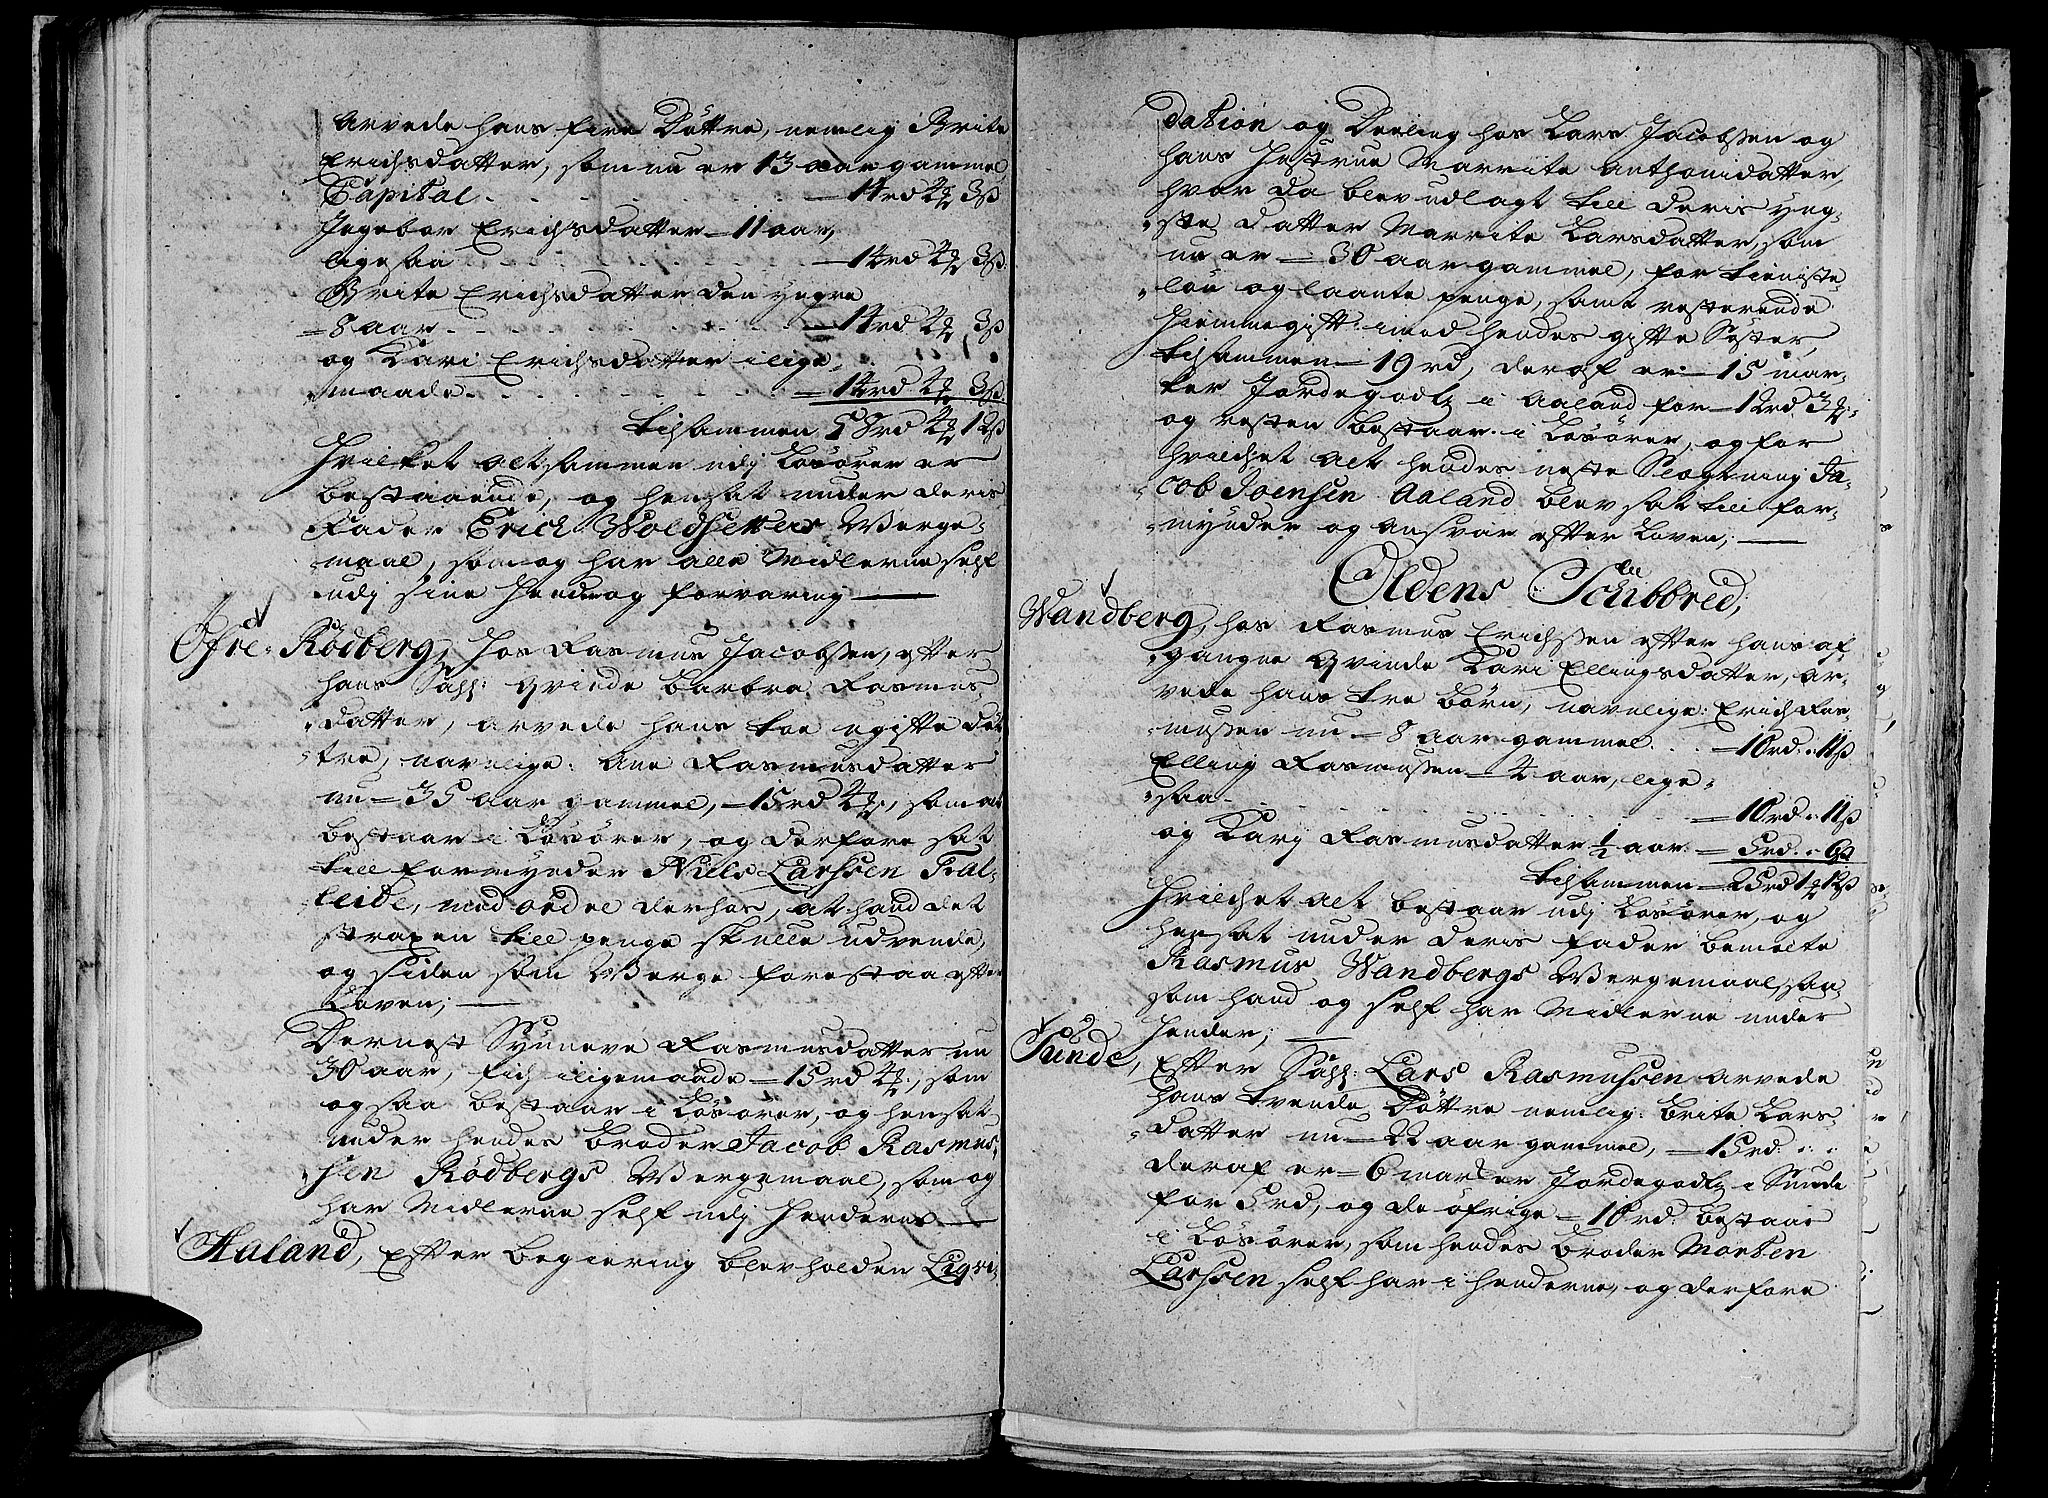 arvede hans fire Döttre, nemlig Brite
Erichsdatter, som nu er 13 aar gammel
Capital - - - - - 14rd 4½ 3ß
Ingebor Erichsdatter - 11 aar,
ligesaa - - - - - 14rd 4½ 3ß
Brite Erichsdatter den yngre
- 8 aar - - - - - 14rd 4½ 3ß
og Kari Erichsdatter i lige-
maade - - - - - 14rd 4½ 3ß
tilsammen 58rd 4½ 12ß
Hvilket alt sammen udj Losörer er
bestaaende, og hensat under deris
Fader Erich Woldsetters Werge-
maal, som og har alle Midlerne self
udj sine Hender og forvaring
Öfre-Rödberg, Hos Rasmus Jacobsen, efter
hans Sahl: qvinde barbra Rasmus-
datter, arvede hans toe ugifte död-
tre, navnlige: Ane Rasmusdatter
nu - 35 aar gammel, - 15rd 4½, som alt
bestaar i Losörer, og derfore sat
till formynder Niels Larssen Tral-
leide, med ordre derhos, at hand det
straxen till penge skulle udvende,
og siden som Werge forestaa efter
Loven;
Dernest Synneve Rasmusdatter nu
30 aar, fich i ligemaade - 15rd 4½, som
ogsaa bestaar i Losörer, og hensat
under hendes broder Jacob Rasmus-
sen Rödbergs Wergemaal, som og
har Midlerne self udj Henderne
Aaland, Efter begiering blev holden Liqvi-
dation og Deeling hos Lars Jacobsen og
hans Hustrue Marrite Anthonidatter,
hvor da blev udlagt till deris yng-
ste datter Marrite Larsdatter, som
nu er - 30 aar gammel, for tieniste-
lön og laante penge, samt resterende
Hiemmegift imod hendes gifte Söster,
tilsammen - 19rd, deraf er - 15 mar-
ker Jordegodtz i Aaland for - 12rd 3½
og resten bestaar i Losörer, og for
hvilchet alt hendes neste Slegtning Ja-
cob Joensen Aaland blev sat till for-
mynder og ansvar efter Loven;
Oldens Schibbred;
Wandberg, hos Rasmus Erichssen efter hans af-
gangne qvinde Kari Ellingsdatter, ar-
vede hans tre börn, navnlige: Erich Ras-
mussen nu - 8 aar gammel - 10rd.. 11ß
Elling Rasmussen - 4 aar, lige-
saa - - - - - 10rd.. 11ß
og Karj Rasmusdatter ½ aar - 5rd.. 6ß
tilsammen - 25rd 1½ 12ß
Hvilchet alt bestaar udj Losörer, og
hensat under deris fader bemelte
Rasmus Wandbergs Wergemaal, saa-
som hand og self har Midlerne under
Hender;
Sunde, Efter Sahl: Lars Rasmussen arvede
hans tvende Döttre nemlig: Brite Lars-
datter nu - 22 aar gammel, - 15rd..
deraf er - 6 marker Jordegodtz i Sunde
for 5rd, og de öfrige - 10rd. bestaar
i Losörer, som hendes broder Morten
Larssen self har i henderne, og derfore